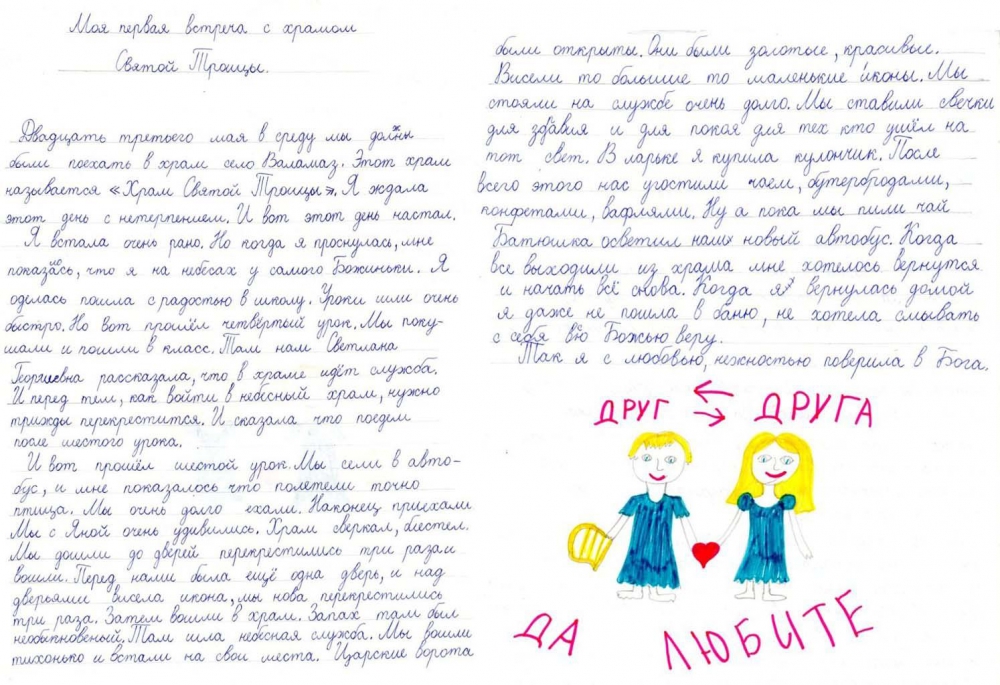 Моя первая встреча с храмом
Святой Троицы.
Двадцать третьего мая в среду мы должны
были поехать в храм село Валамаз. Этот храм
называется «Храм Святой Троицы». Я ждала
этот день с нетерпением. И вот этот день настал.
Я встала очень рано. Но когда я проснулась, мне
показалось, что я на небесах у самого Боженьки. Я
оделась пошла с радостью в школу. Уроки шли очень
быстро. Но вот прошёл четвёртый урок. Мы поку-
шали и пошли в класс. Там нам Светлана
Георгиевна рассказала, что в храме идёт служба.
И перед тем, как войти в небесный храм, нужно
трижды перекрестится. И сказала что поедим
после шестого урока.
И вот прошёл шестой урок. Мы сели в авто-
бус, и мне показалось что полетели точно
птица. Мы очинь долго ехали. Наконец приехали
Мы с Яной очень удивились. Храм сверкал, блестел.
Мы дошли до дверей перекрестились три раза и
вошли. Перед нами была ещё одна дверь, и над
дверьями висела икона, мы нова перекрестились
три раза. Затем вошли в храм. Запах там был
необыкновеный. Там шла небесная служба. Мы вошли
тихонько и встали на свои места. Царские ворота
были открыты. Они были золотые, красивые.
Висели то большие то маленькие иконы. Мы
стояли на службе очень долго. Мы ставили свечки
для здравия и для покоя для тех кто ушёл на
тот свет. В ларьке я купила кулончик. После
всего этого нас угостили чаем, бутербродами,
конфетами, вафлями. Ну а пока мы пили чай
Батюшка осветил наш новый автобус. Когда
все выходили из храма мне хотелось вернутся
и начать всё снова. Когда я вернулась домой
я даже не пошла в баню, не хотела смывать
с себя Божью веру.
Так я с любовью, нежностью поверила в Бога.
ДРУГ ДРУГА
ДА ЛЮБИТЕ